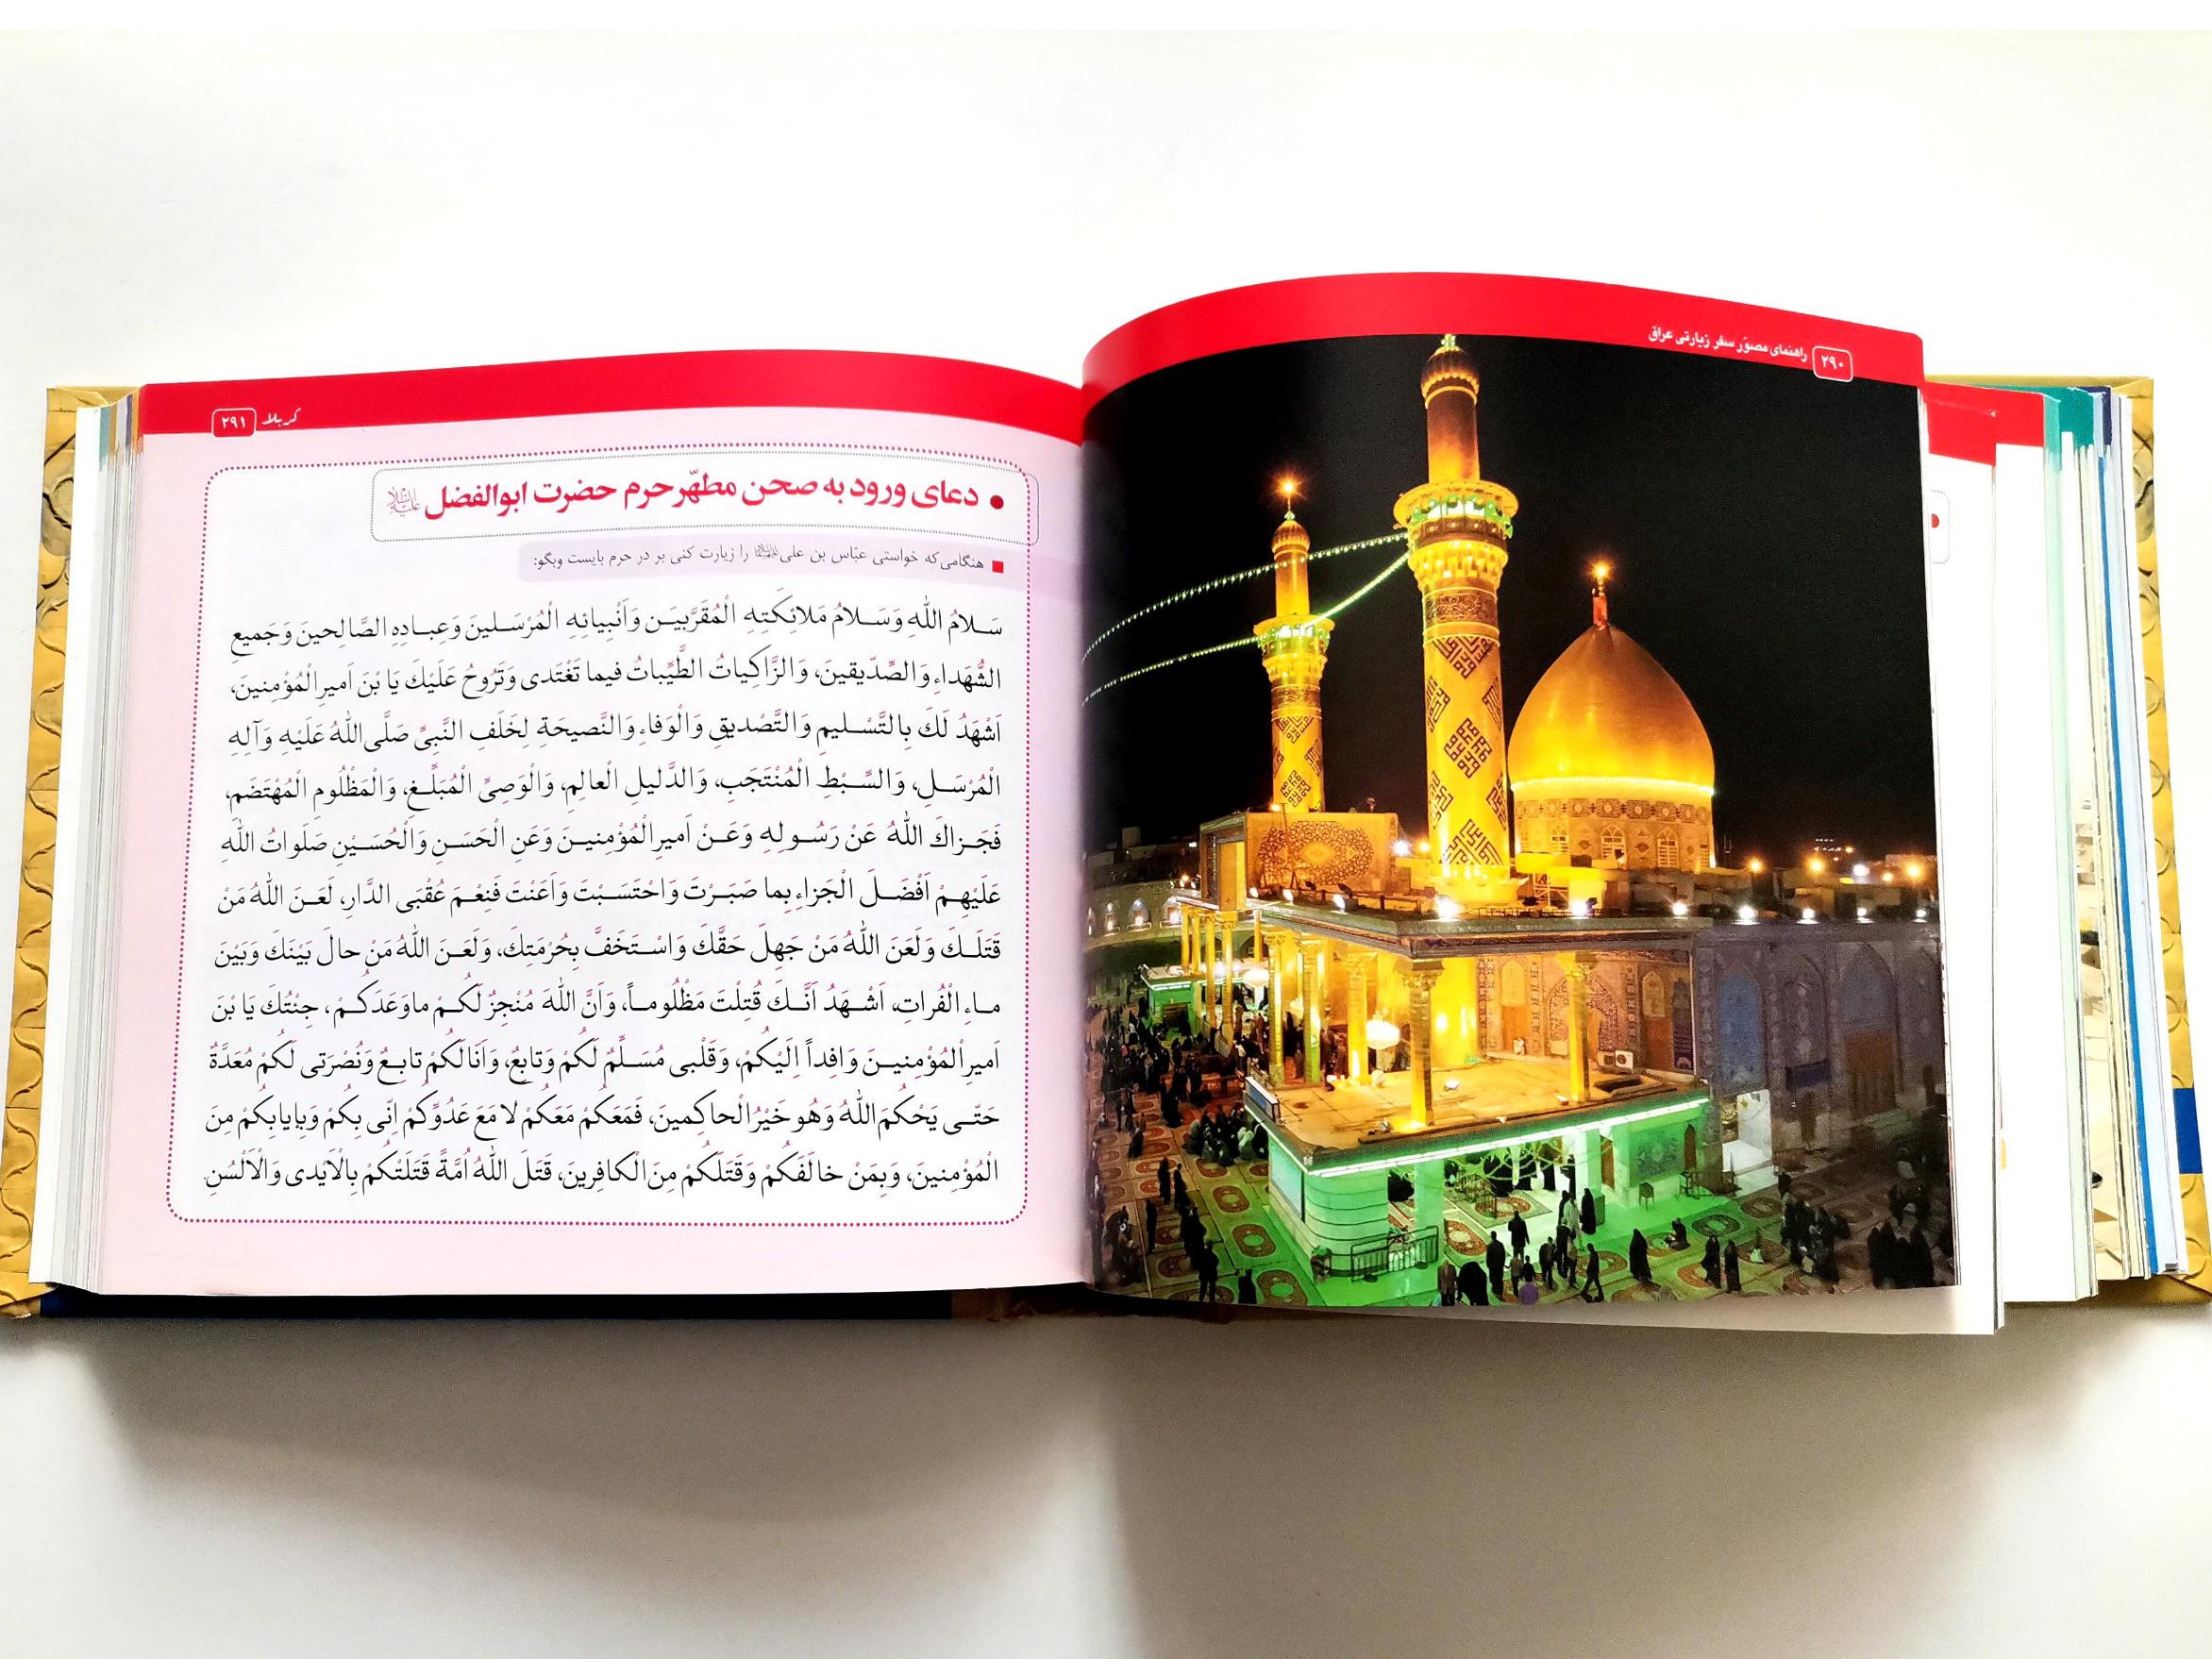 ۲۹۰ راهنمای مصوّر سفر زیارتی عراق
کربلا ۲۹۱
• دعای ورود به صحن مطهّر حرم حضرت ابوالفضل علیه‌السلام
هنگامی‌که خواستی عبّاس بن علی علیه‌السلام را زیارت کنی بر در حرم بایست وبگو:
سَـلامُ اللهِ وَسَـلامُ مَلائِكَتِهِ الْمُقَرَّبيـن وَاَنْبِيائِهِ الْمُرْسَـلينَ وَعِبـادِهِ الصَّالِحينَ وَجَميعِ
الشُّهَداءِ وَالصِّدّيقينَ، وَالزَّاكِياتُ الطَّيِّباتُ فيما تَغْتَدى وَتَرُوحُ عَلَيْكَ يَا بْنَ اَميرِالْمُؤْمِنينَ،
اَشْهَدُ لَكَ بِالتَّسْـليمِ وَالتَّصْديقِ وَالْوَفاءِ وَالنَّصيحَةِ لِخَلَفِ النَّبِىِّ صَلَّى اللهُ عَلَيْهِ وَآلِهِ
الْمُرْسَـلِ، وَالسِّـبْطِ الْمُنْتَجَبِ، وَالدَّليلِ الْعالِمِ، وَالْوَصِىِّ الْمُبَلِّـغِ، وَالْمَظْلُومِ الْمُهْتَضَمِ،
فَجَـزاكَ اللهُ عَنْ رَسُـولِهِ وَعَـنْ اَميرِالْمُؤْمِنيـنَ وَعَنِ الْحَسَـنِ وَالْحُسَـيْنِ صَلَواتُ اللهِ
عَلَيْهِـمْ اَفْضَـلَ الْجَزاءِ بِما صَبَـرْتَ وَاحْتَسَـبْتَ وَاَعَنْتَ فَنِعْـمَ عُقْبَى الدَّارِ، لَعَـنَ اللهُ مَنْ
قَتَلَـكَ وَلَعَنَ اللهُ مَنْ جَهِلَ حَقَّكَ وَاسْـتَخَفَّ بِحُرْمَتِكَ، وَلَعَـنَ اللهُ مَنْ حالَ بَيْنَكَ وَبَيْنَ
مـاءِ الْفُراتِ، اَشْـهَدُ اَنَّـكَ قُتِلْتَ مَظْلُومـاً، وَاَنَّ اللهَ مُنْجِزٌ لَكُـمْ ماوَعَدَكُـمْ، جِئْتُكَ يَا بْنَ
اَميرِالْمُؤْمِنيـنَ وَافِداً اِلَيْكُمْ، وَقَلْبى مُسَـلِّمٌ لَكُمْ وَتابِعٌ، وَاَنَا لَكُمْ تابِـعٌ وَنُصْرَتى لَكُمْ مُعَدَّةٌ
حَتّـى يَحْكُمَ اللهُ وَهُو خَيْرُالْحاكِمينَ، فَمَعَكُمْ مَعَكُمْ لا مَعَ عَدُوِّكُمْ اِنّى بِكُمْ وَبِاِيابِكُمْ مِنَ
الْمُؤْمِنينَ، وَبِمَنْ خالَفَكُمْ وَقَتَلَكُمْ مِنَ الْكافِرينَ، قَتَلَ اللهُ اُمَّةً قَتَلَتْكُمْ بِالْاَيْدى وَالْاَلْسُنِ.